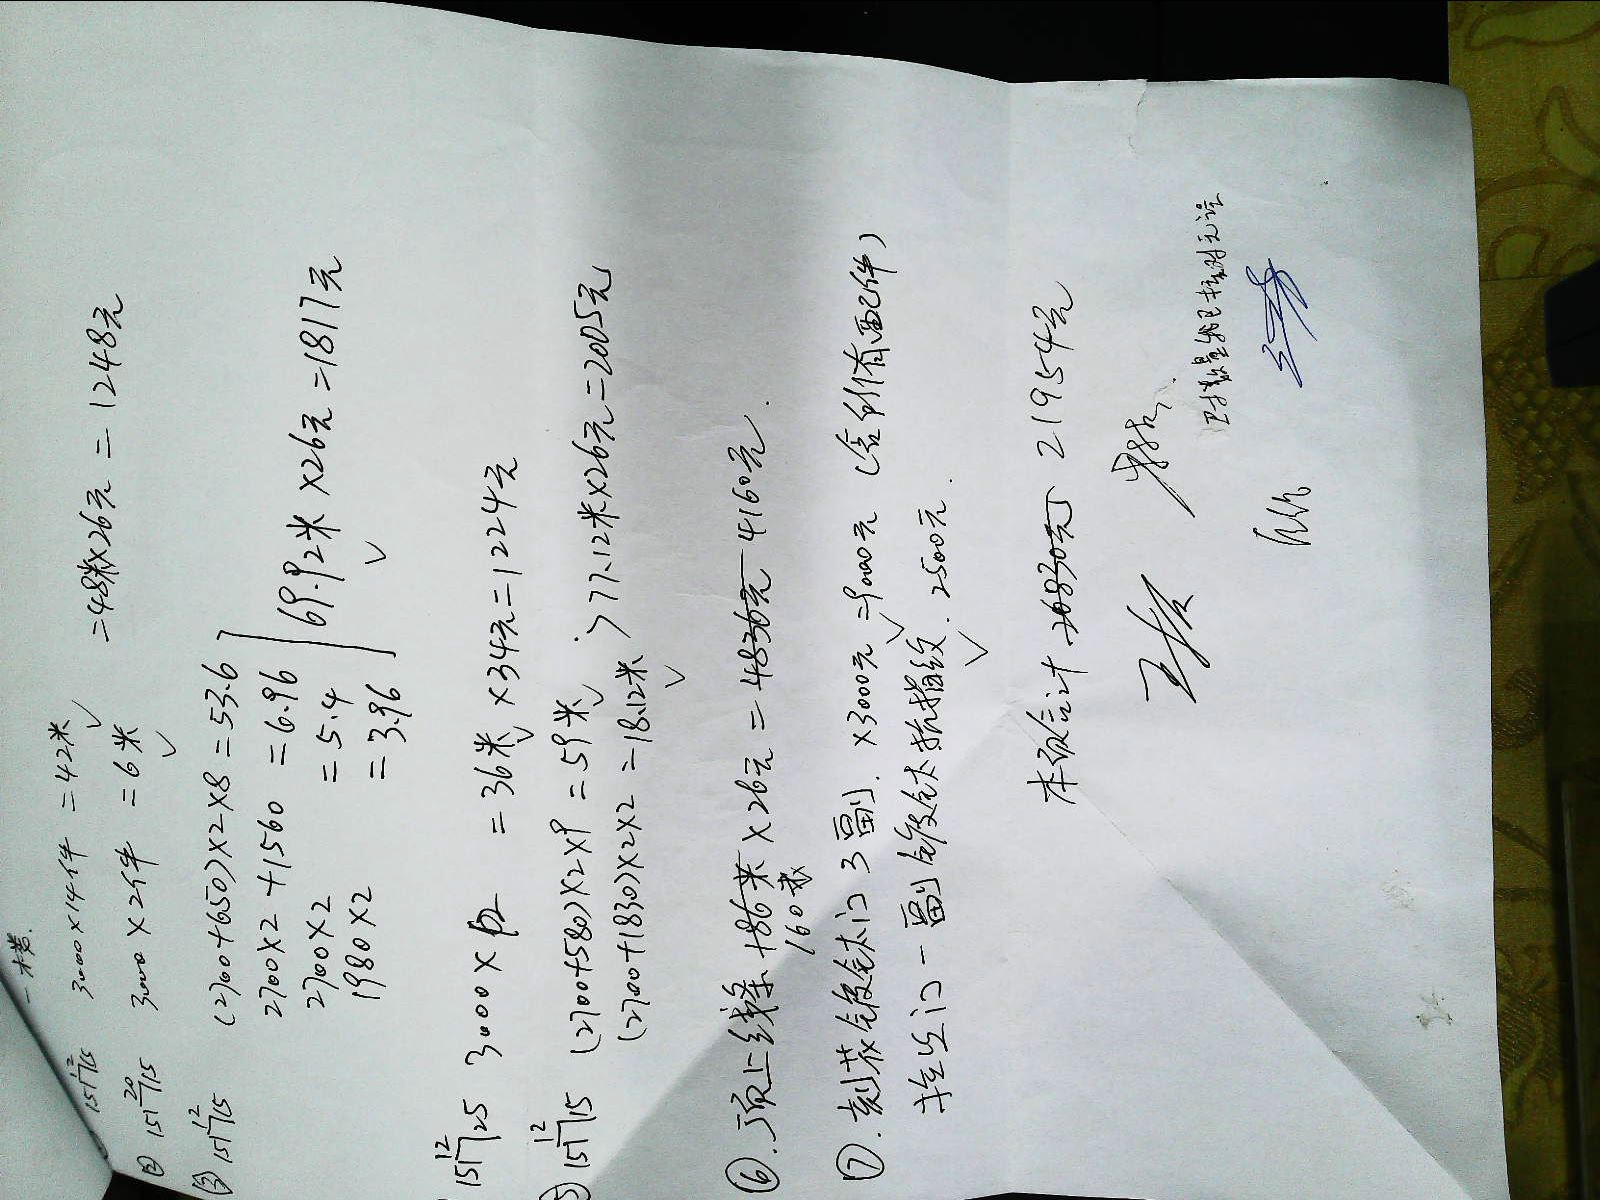 一楼.
15 12 15 3000×14件 =42米
② 15 20 15 3000×2件 =6米 =48米×26元=1248元
③ 15 12 15 (2700+650)×2×8=53.6
2700×2+1560 =6.96
2700×2 =5.4
1980×2 =3.96
69.92米×26元=1817元
15 12 25 3000×12 =36米×34元=1224元
⑤ 15 12 15 (2700+580)×2×9=59米
(2700+1830)×2×2=18.12米
>77.12米×26元=2005元
⑥.顶上线条 +86米×26元=4836元 4160元.
160米
⑦.刻花镀钛门3副.×3000元=9000元(含所有配件)
拉丝门一副镀钛抗指纹.2500元.
本页合计 20830元 21954元
对数量我已核对无误